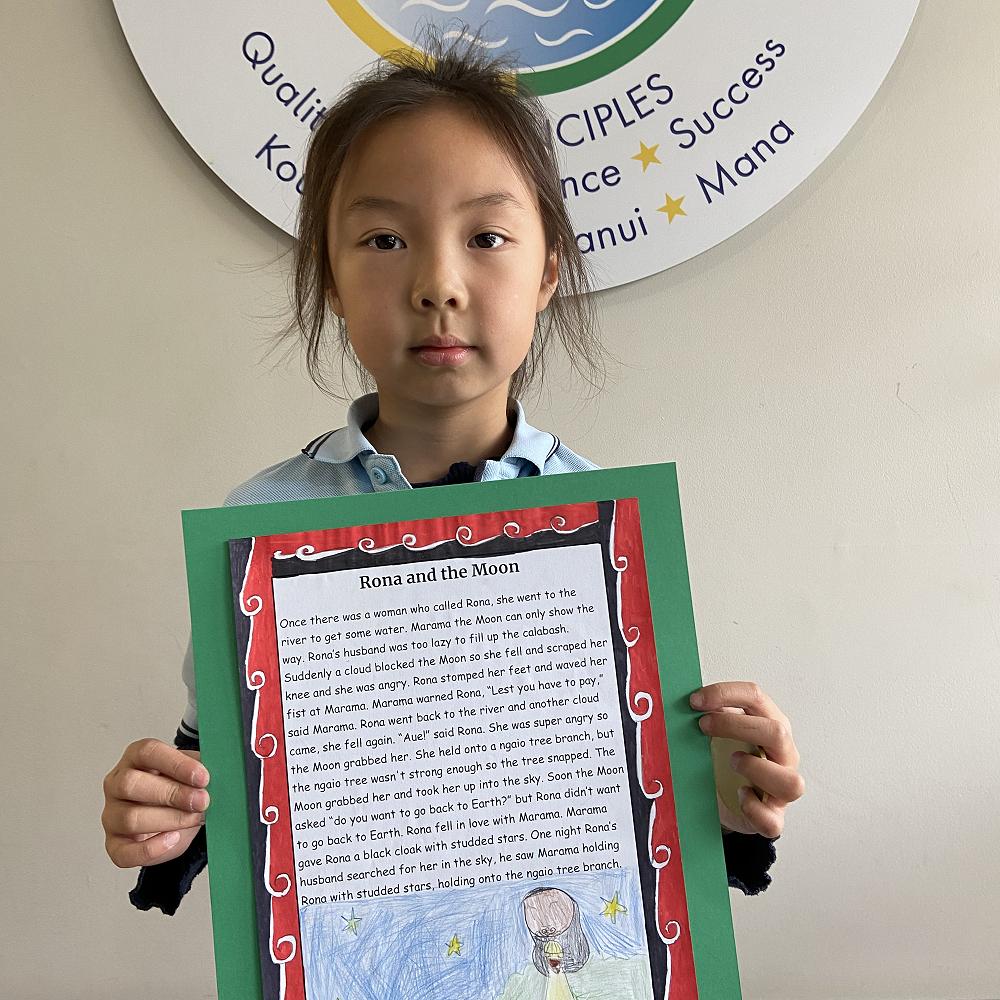 Qualit
CIPLES
nce ★ Success
Kou
anui ★ Mana
Rona and the Moon
Once there was a woman who called Rona, she went to the
river to get some water. Marama the Moon can only show the
way. Rona's husband was too lazy to fill up the calabash.
Suddenly a cloud blocked the Moon so she fell and scraped her
knee and she was angry. Rona stomped her feet and waved her
fist at Marama. Marama warned Rona, "Lest you have to pay,"
said Marama. Rona went back to the river and another cloud
came, she fell again. "Aue!" said Rona. She was super angry so
the Moon grabbed her. She held onto a ngaio tree branch, but
the ngaio tree wasn't strong enough so the tree snapped. The
Moon grabbed her and took her up into the sky. Soon the Moon
asked "do you want to go back to Earth?" but Rona didn't want
to go back to Earth. Rona fell in love with Marama. Marama
gave Rona a black cloak with studded stars. One night Rona's
husband searched for her in the sky, he saw Marama holding
Rona with studded stars, holding onto the ngaio tree branch.